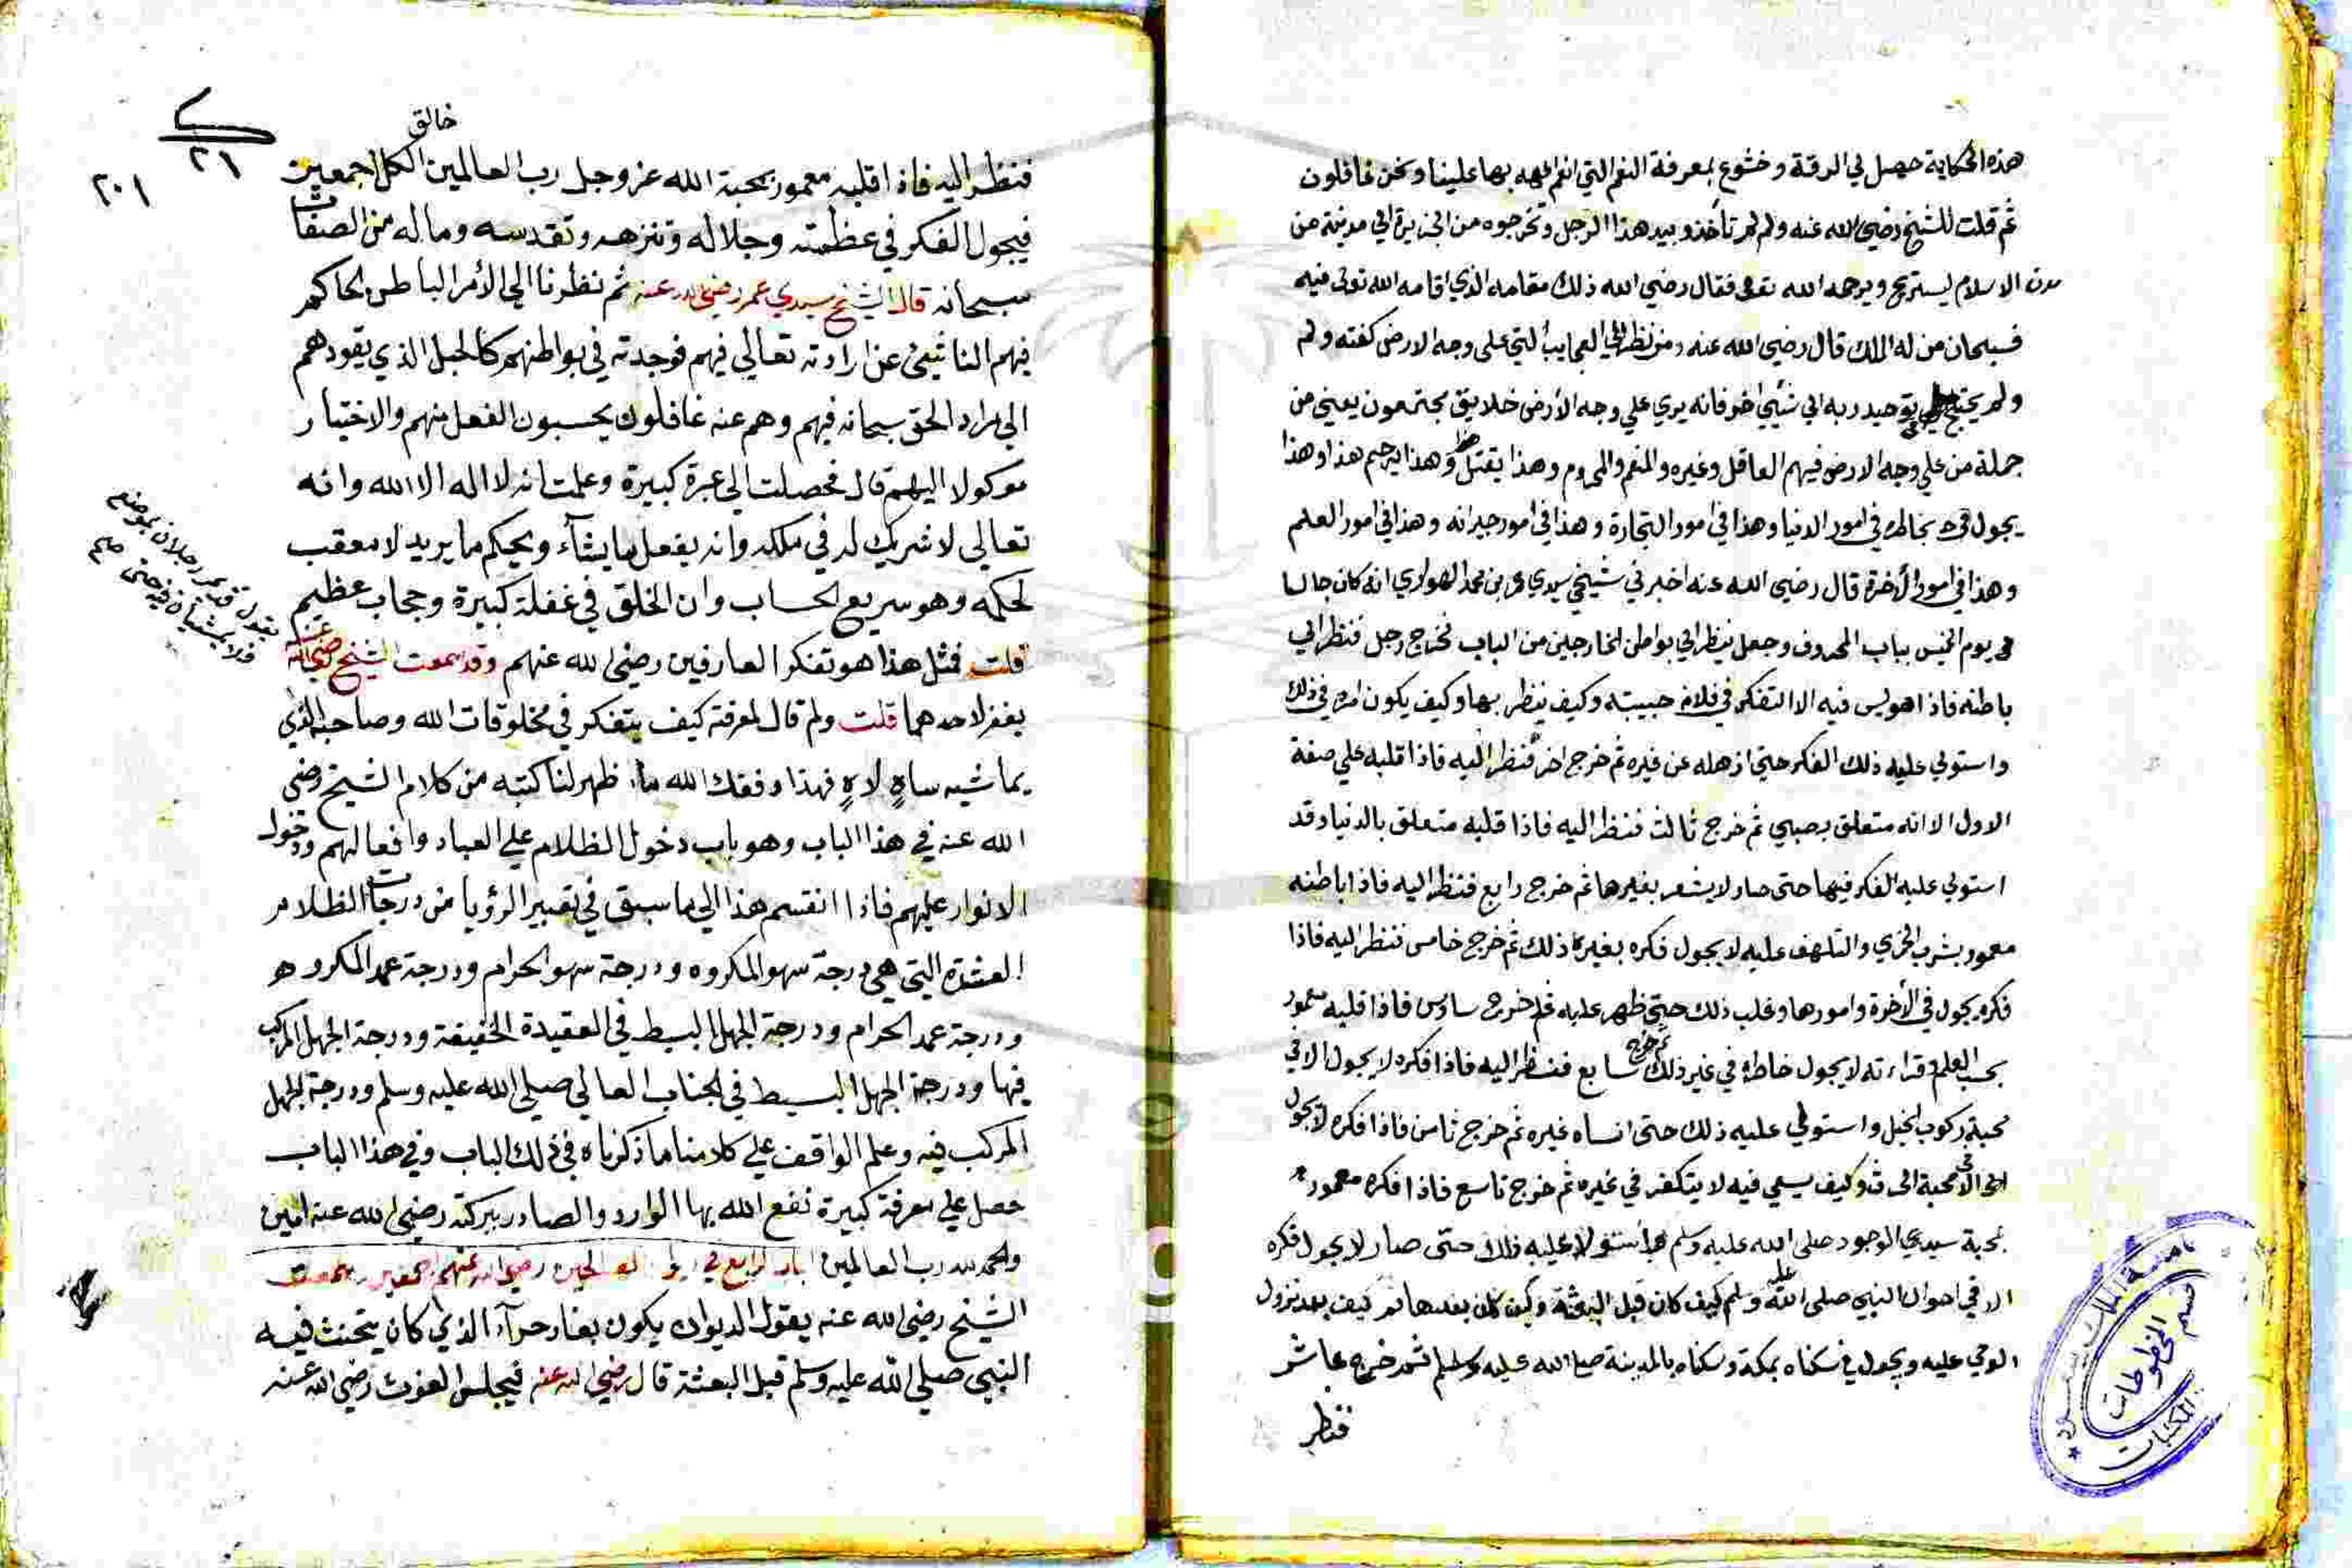 هذه الحكاية حصل لي الرقة وخشوع بمعرفة النعم التي انعم الله بها علينا ونحن غافلون
ثم قلت للشيخ رضي الله عنه ولم لم تأخذو بيد هذا الرجل وتخرجوه من الجزيرة الي مدينة من
مدن الاسلام ليستريح ويرحمه الله فقال رضي الله ذلك مقامه الذي اقامه الله تعالى فيه
فسبحان من له الملك قال رضي الله عنه ومن نظر الي العجايب التي على وجه الارض كفته ولم
ولم يحتج في توحيد ربه الي شيئ اخر فانه يري علي وجه الأرض خلايق مجتمعون يعني من
جملة من علي وجه الارض فيهم العاقل وغيره والمنعم والمحروم وهذا يقتل وهذا يرحم هذا وهذا
يجول بخاطره في امور الدنيا وهذا في امور التجارة وهذا في امور جيرانه وهذا في امور العلم
وهذا في امور الأخرة قال رضي الله عنه اخبرني شيخي سيدي عمر بن محمد الهواري انه كان جالسا
يوم الخميس بباب المحروق وجعل ينظر الي بواطن الخارجين من الباب فخرج رجل فنظر الي
باطنه فاذا هو ليس فيه الا التفكر في فلانه حبيبته وكيف ينظر بها وكيف يكون امره في ذلك
واستولي عليه ذلك الفكر حتي اذهله عن غيره ثم خرج اخر فنظر اليه فاذا قلبه علي صفة
الاول الا انه متعلق بصبي ثم خرج ثالث فنظر اليه فاذا قلبه متعلق بالدنيا وقد
استولي عليه الفكر فيها حتى صار لا يشعر بغيرها ثم خرج رابع فنظر اليه فاذا باطنه
معمور بشرب الخمر والتلهف عليه لا يجول فكره بغير ذلك ثم خرج خامس فنظر اليه فاذا
فكره يجول في الأخرة وامورها وغلب ذلك حتي ظهر عليه ثم خرج سادس فاذا قلبه معمور
بحب العلم وقراءته لا يجول خاطره في غير ذلك ثم خرج سابع فنظر اليه فاذا فكره لا يجول الا في
محبة ركوب الخيل واستولي عليه ذلك حتى انساه غيره ثم خرج ثامن فاذا فكره لا يجول
الا في محبة الحرث وكيف يسعي فيه لا يتفكر في غيره ثم خرج تاسع فاذا فكره معمور
بمحبة سيدي الوجود صلى الله عليه وسلم استولا عليه ذلك حتى صار لا يجول فكره
الا في احوال النبي صلى الله عليه وسلم كيف كان قبل البعثة وكيف كان بعدها ثم كيف بعد نزول
الوحي عليه ويجول في سكناه بمكة وسكناه بالمدينة صلى الله عليه وسلم ثم خرج عاشر
فنظر
قسم المخطوطات
المكتبات
٢١
٢٠١
خالق
فنظر اليه فاذا قلبه معمور بمحبة الله عز وجل رب العالمين الكل اجمعين
فيجول الفكر في عظمته وجلاله وتنزهه وتقدسه وماله من الصفات
سبحانه قال الشيخ سيدي عمر رضي الله عنه ثم نظرنا الي الأمر الباطن الحاكم
فيهم الناشئ عن ارادته تعالي فيهم فوجدته في بواطنهم كالحبل الذي يقودهم
الي مراد الحق سبحانه فيهم وهم عنه غافلون يحسبون الفعل منهم والاختيار
موكولا اليهم قال فحصلت لي عبرة كبيرة وعلمت انه لا اله الا الله وانه
تعالي لا شريك له في ملكه وانه يفعل ما يشآء ويحكم ما يريد لا معقب
لحكمه وهو سريع الحساب وان الخلق في غفلة كبيرة وحجاب عظيم
قلت فمثل هذا هو تفكر العارفين رضي الله عنهم وقد سمعت الشيخ رضي الله عنه
يقول قد يمر رجلان بموضع
فلا يمشيان فيه حتى صح
يغفر لاحدهما قلت ولم قال لمعرفته كيف يتفكر في مخلوقات الله وصاحبه الذي
يماشيه ساهٍ لاهٍ فهذا وفقك الله ما ظهر لنا كتبه من كلام الشيخ رضي
الله عنه في هذا الباب وهو باب دخول الظلام علي العباد وافعالهم ودخول
الانوار عليهم فاذا انقسم هذا الي ما سبق في تعبير الرؤيا من درجات الظلام
العشرة التي هي درجة سهو المكروه ودرجة سهو الحرام ودرجة عمد المكروه
ودرجة عمد الحرام ودرجة الجهل البسيط في العقيدة الخفيفة ودرجة الجهل المركب
فيها ودرجة الجهل البسيط في الجناب العالي صلي الله عليه وسلم ودرجة الجهل
المركب فيه وعلم الواقف علي كلامنا ما ذكرناه في ذلك الباب وفي هذا الباب
حصل علي معرفة كبيرة نفع الله بها الوارد والصادر ببركته رضي الله عنه امين
والحمد لله رب العالمين الباب الرابع في ديوان الصالحين رضي الله عنهم اجمعين سمعت
الشيخ رضي الله عنه يقول الديوان يكون بغار حرآء الذي كان يتحنث فيه
النبي صلي الله عليه وسلم قبل البعثة قال رضي الله عنه فيجلس الغوث رضي الله عنه